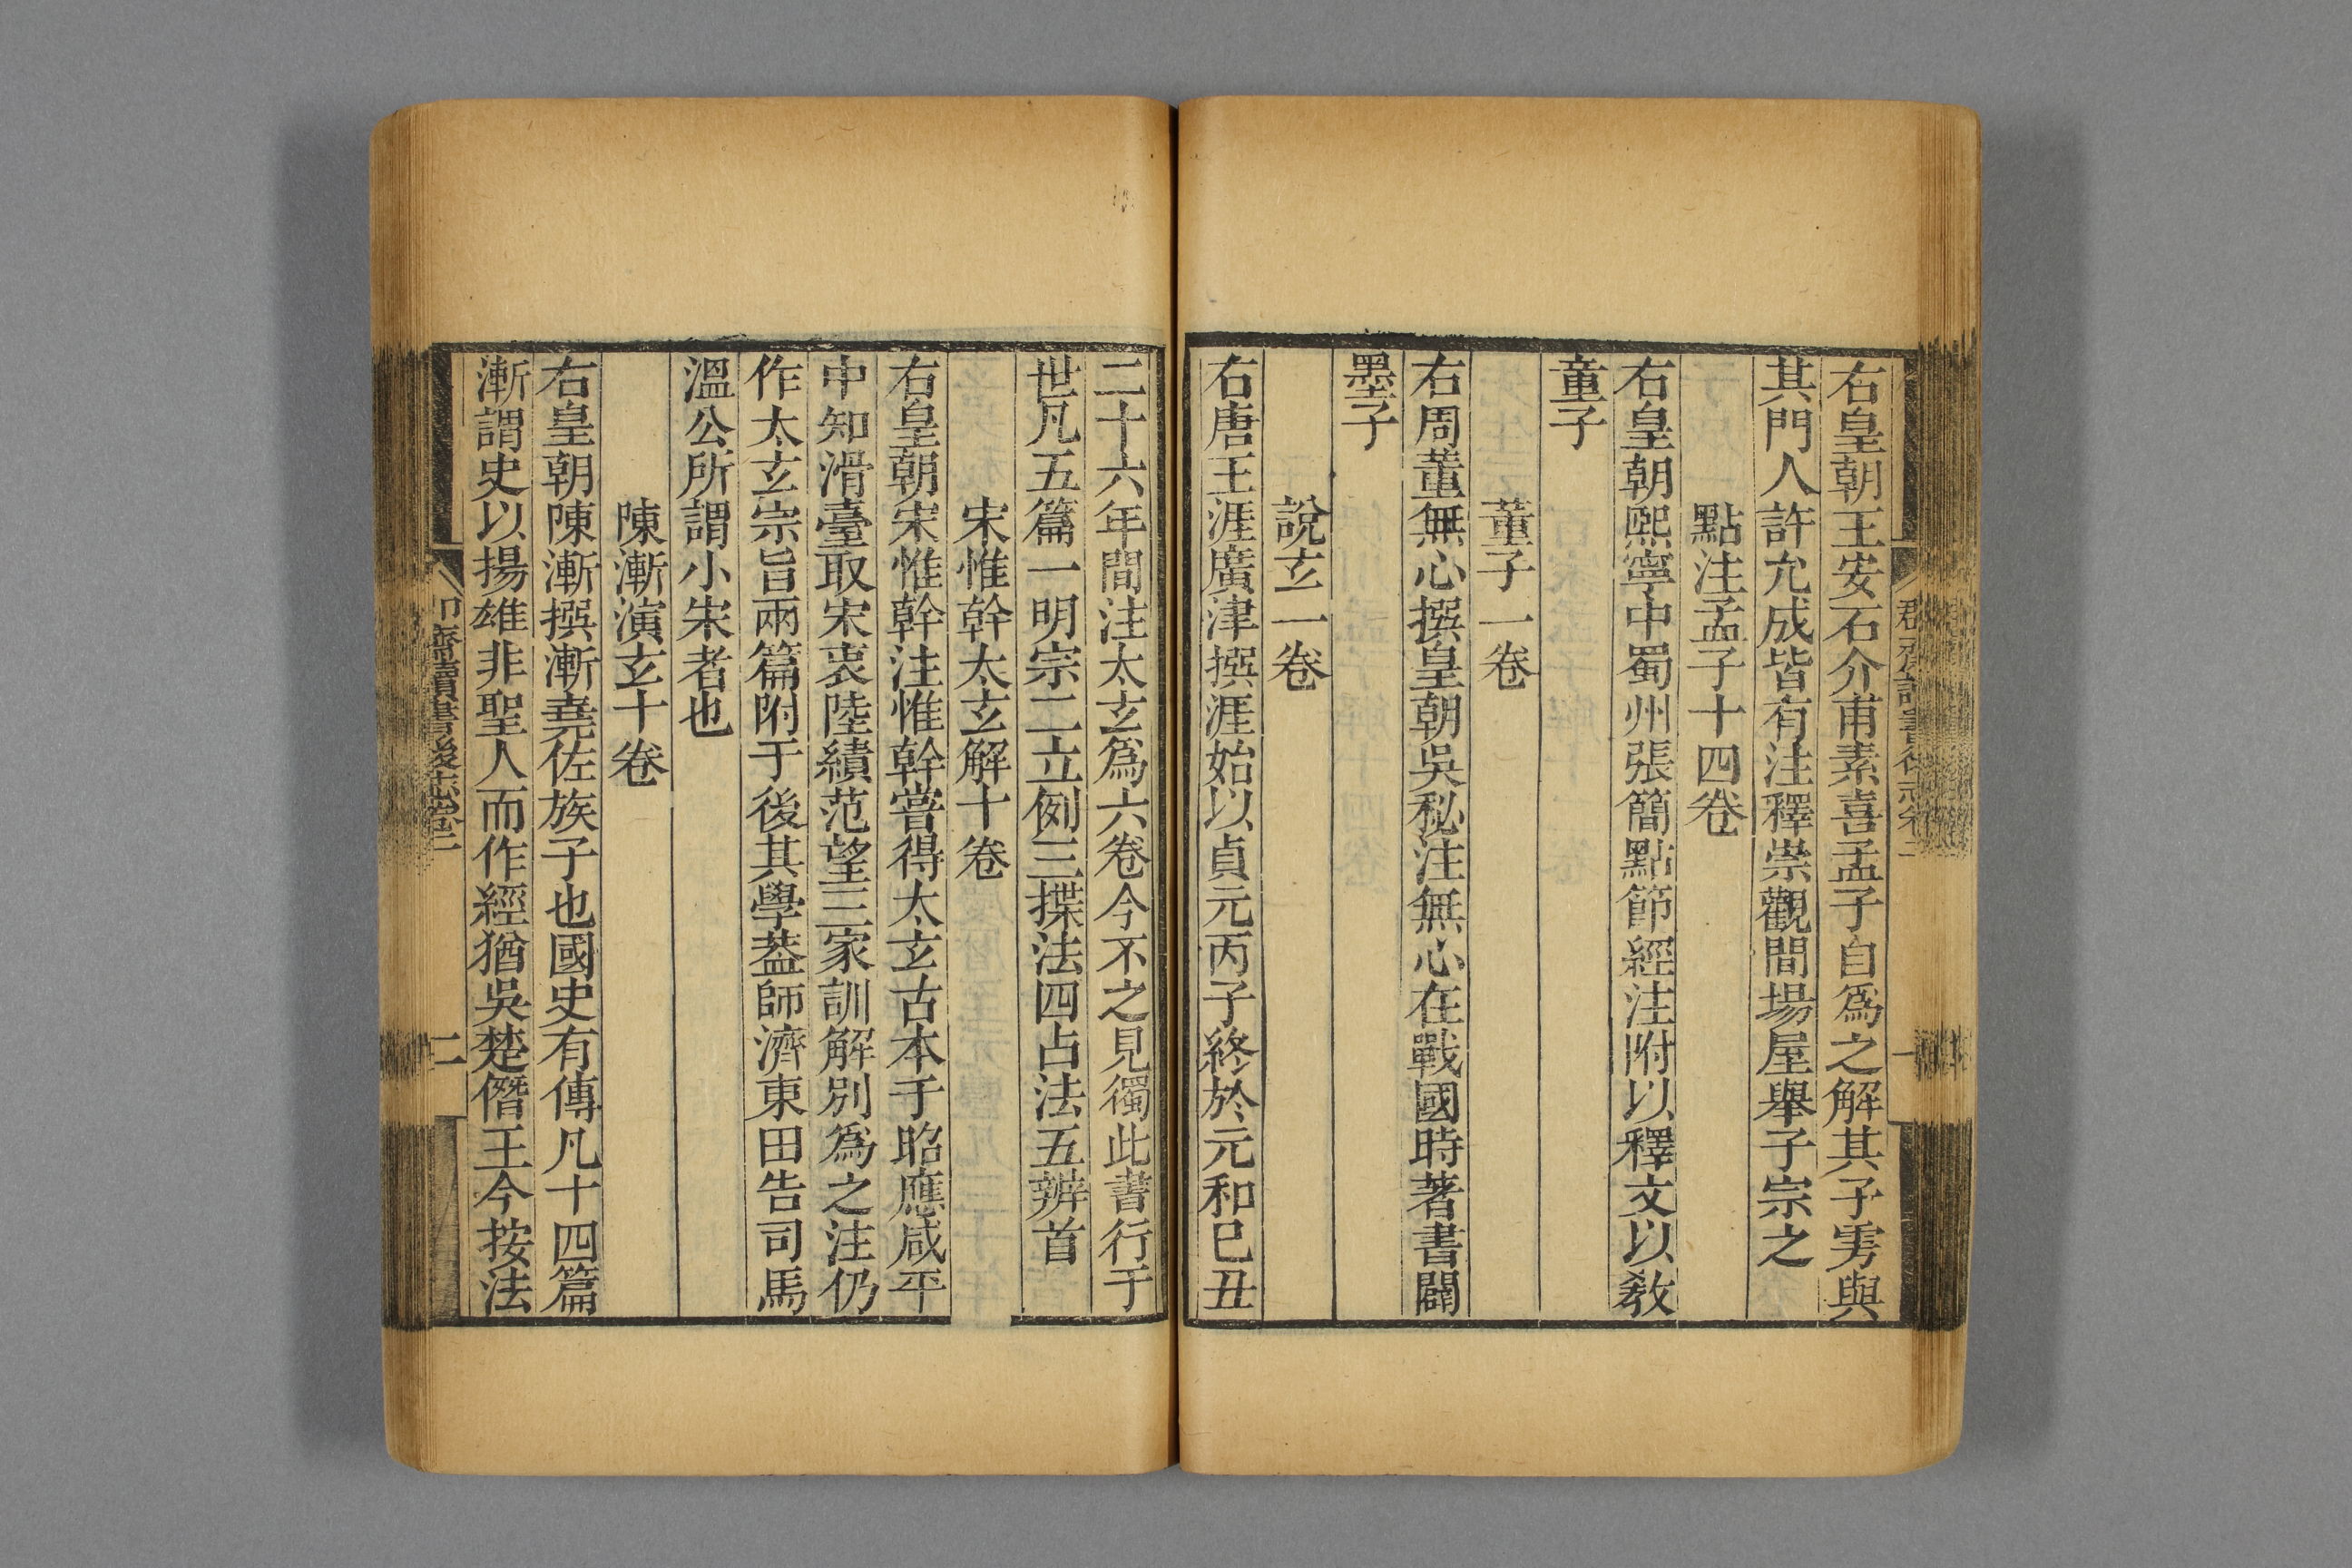 右皇朝王安石介甫素喜孟子自爲之解其子雱與
其門人許允成皆有注釋崇觀間場屋舉子宗之
點注孟子十四卷
右皇朝熙寧中蜀州張簡點節經注附以釋文以敎
童子
董子一卷
右周董無心撰皇朝吳秘注無心在戰國時著書闢
墨子
說玄一卷
右唐王涯廣津撰涯始以貞元丙子終於元和巳丑
二十六年間注太玄爲六卷今不之見獨此書行于
世凡五篇一明宗二立例三揲法四占法五辨首
宋惟幹太玄解十卷
右皇朝宋惟幹注惟幹嘗得太玄古本于昭應咸平
中知滑臺取宋衷陸績范望三家訓解別爲之注仍
作太玄宗旨兩篇附于後其學葢師濟東田告司馬
溫公所謂小宋者也
陳漸演玄十卷
右皇朝陳漸撰漸堯佐族子也國史有傳凡十四篇
漸謂史以揚雄非聖人而作經猶吳楚僭王今按法
齋讀書後志卷二
二